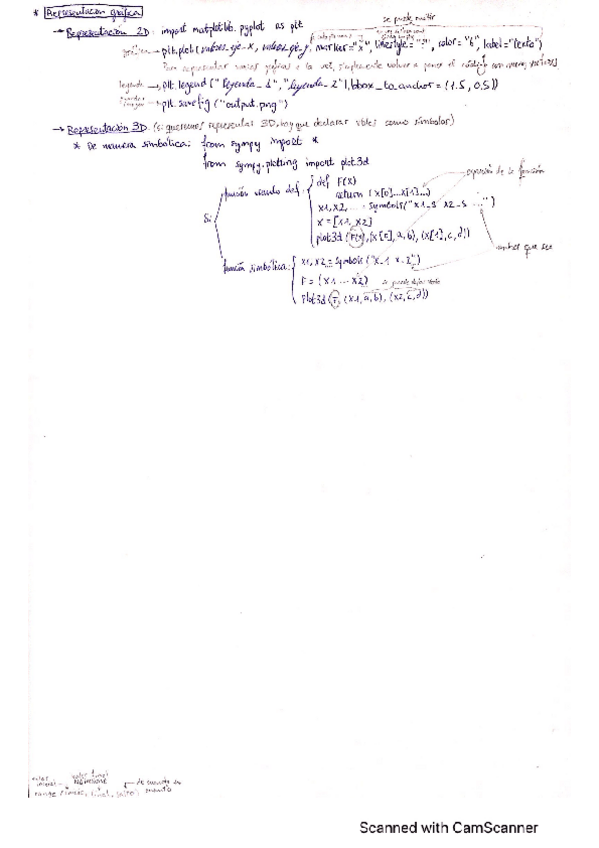 se puede omitir
* Representación gráfica
→ Representación 2D: import matplotlib.pyplot as plt
gráfica → plt.plot(valores_eje_x, valores_eje_y, marker="x", linestyle="", color="b", label="texto")
Para representar varias gráficas a la vez, simplemente volver a poner el código con nuevos vectores
leyenda → plt.legend("leyenda_1", "leyenda_2", bbox_to_anchor=(1.5, 0.5))
→ plt.savefig("output.png")
→ Representación 3D: (si queremos representar 3D, hay que declarar vbles como símbolos)
* De manera simbólica: from sympy import *
from sympy.plotting import plot3d
expresión de la función
función usando def: def F(X)
return (x[0]...x[1]...)
Si:
x1, x2, ... = symbols("x1_s x2_s ...")
X = [x1, x2]
plot3d(F(X), (x[0], a, b), (x[1], c, d))
función simbólica: x1, x2 = symbols("x_1 x_2")
F = (x1 ... x2)
plot3d(F, (x1, a, b), (x2, c, d))
Scanned with CamScanner